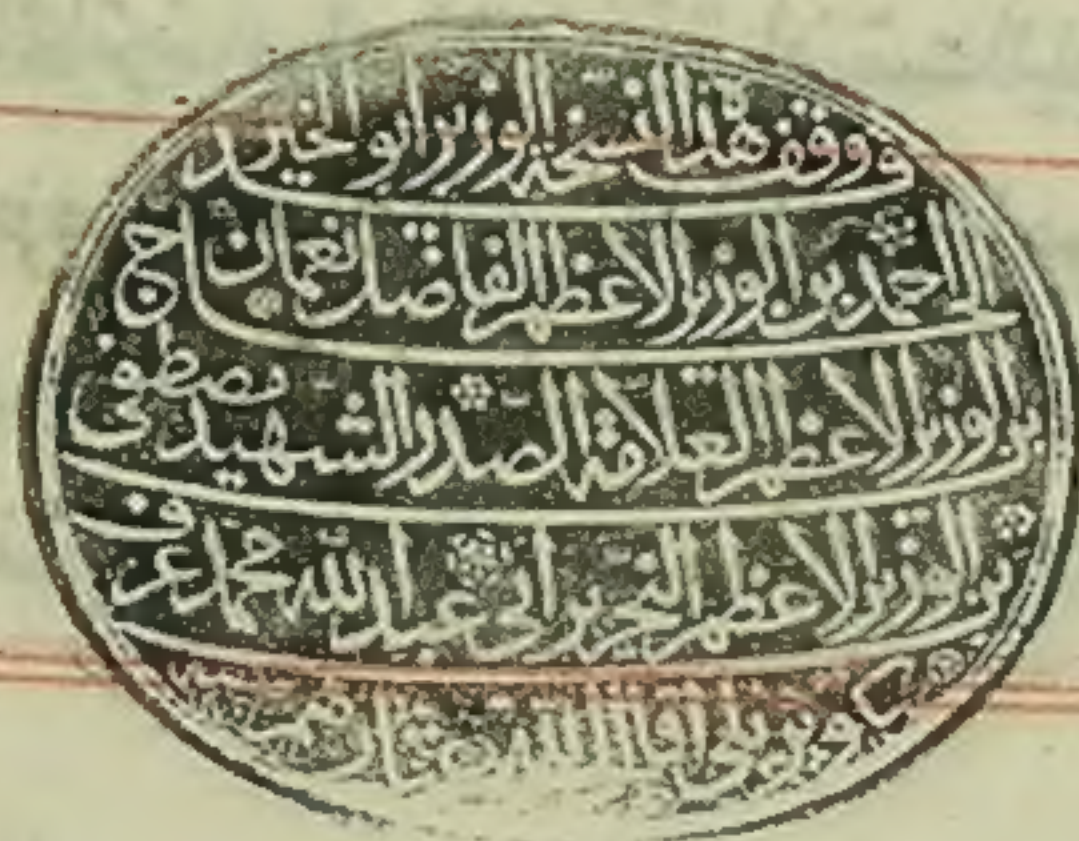 قد وقف هذا النسخة الوزير ابو الخير
الحاج احمد بن الوزير الاعظم الفاضل نعمان
بن الوزير الاعظم العلامة الصدر الشهيد مصطفى
بن الوزير الاعظم النحرير ابى عبد الله محمد عرف
بكوپريلى اقال الله عثارهم